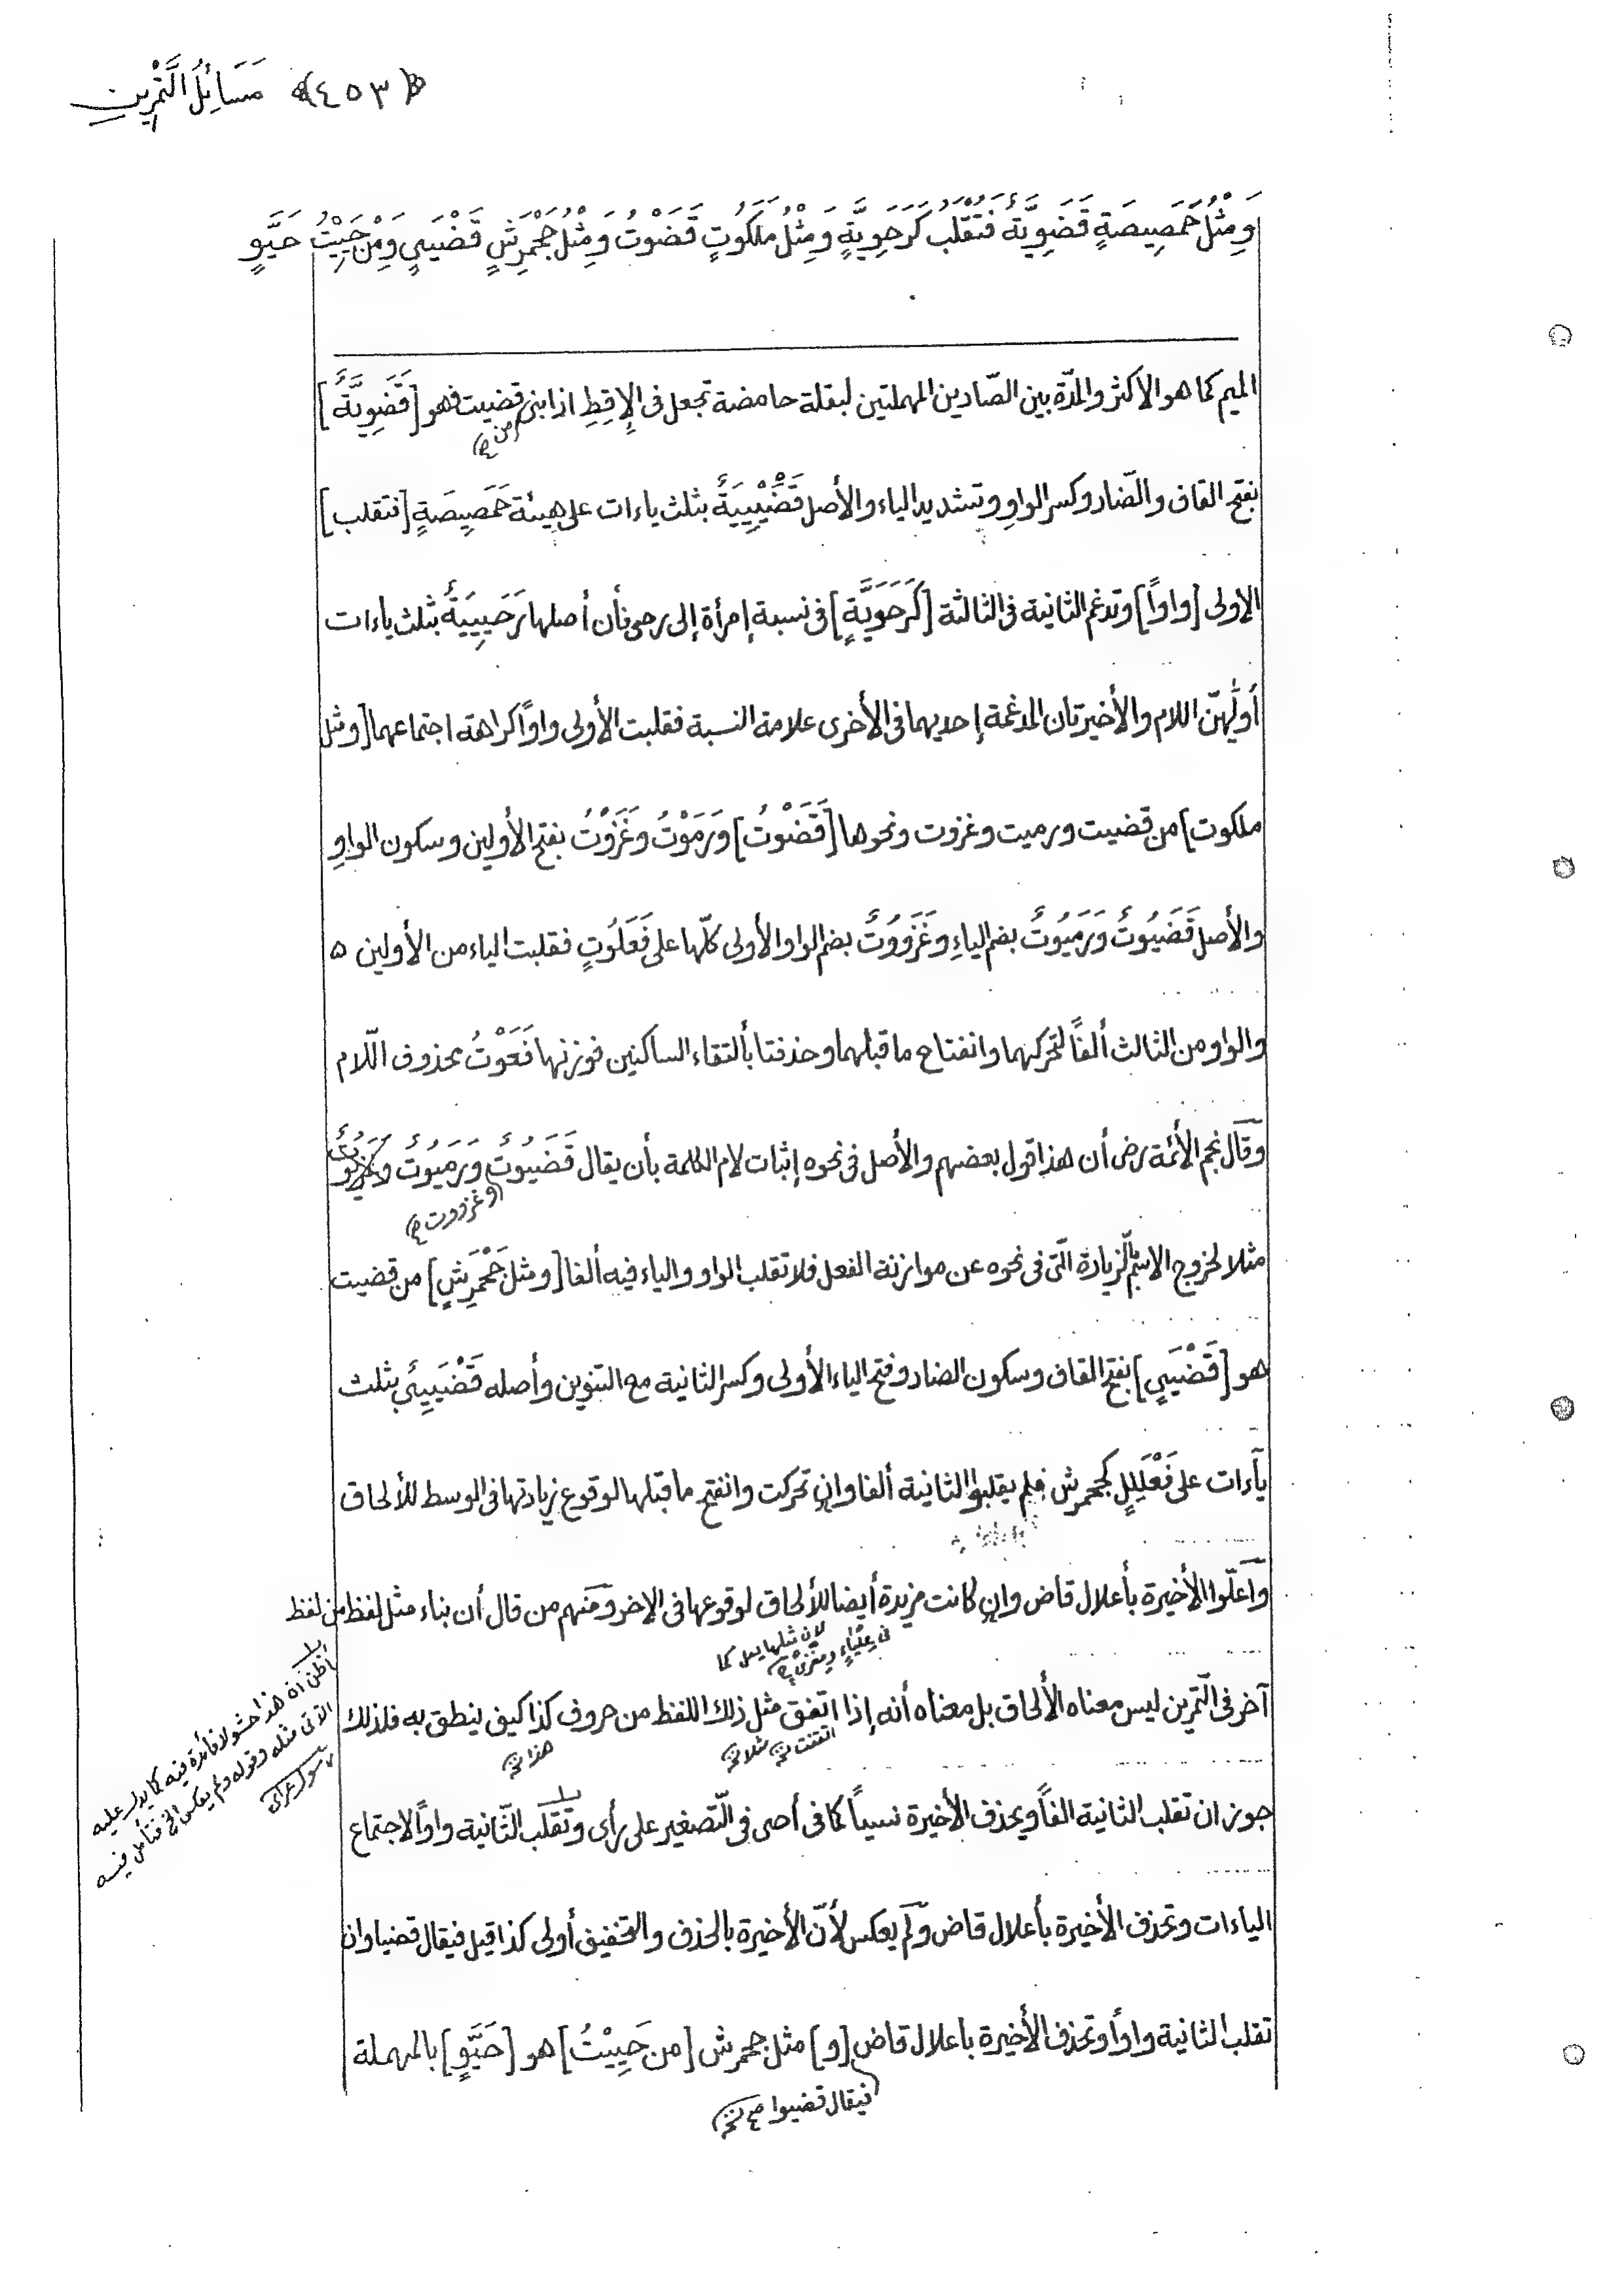 ﴿٤٥٣﴾ مَسَائِلُ التَّمْرِينِ
وَمِثْلُ حَمَصِيصَةٍ قَضَوِيَّةٌ فَتُقْلَبُ كَرَحَوِيَّةٍ وَمِثْلُ مَلَكُوتٍ قَضَوْتٌ وَمِثْلُ جَحْمَرِشٍ قَضْيَيٍ وَمِنْ حَيِيْتُ حَيَّوٍ
الميم كما هو الاكثر والمدّة بين الصّادين المهملتين لبقلة حامضة تجعل فى الإِقِطِ اذا بنى قضيت فهو [قَضَوِيَّةٌ]
(من ع)
بفتح القاف والضّاد وكسر الواوِ وتشديد الياء والأصل قَضَيِيْيَةٌ بثلث ياءات على هيئة حَمَصِيصَةٍ [فتقلب]
الاولى [واوًا] وتدغم الثانية فى الثالثة [كَرَحَوِيَّةٍ] فى نسبة إمرأة إلى رحى فأن أصلها رَحَيِيَةٌ بثلث ياءات
أولٰهنّ اللام والأخيرتان المدغمة إحديهما فى الأخرى علامة النسبة فقلبت الأولى واوًا كراهة اجتماعهما [ومثل
ملكوت] من قضيت ورميت وغزوت ونحوها [قَضَوْتٌ] وَرَمَوْتٌ وغَزَوْتٌ بفتح الأولين وسكون الواوِ
والأصل قَضَيُوتٌ وَرَمَيُوتٌ بضم الياءِ وغَزَوُوتٌ بضم الواو الأولى كلّها على فَعَلُوتٍ فقلبت الياء من الأولين ٥
والواو من الثالث ألفاً لتحركهما وانفتاح ما قبلهما وحذفتا بألتقاء الساكنين فوزنها فَعَوْتٌ بحذوف اللّام
وقال نجم الأئمة رض أن هذا قول بعضهم والأصل فى نحوه إثبات لام الكلمة بأن يقال قَضَيُوتٌ وَرَمَيُوتٌ
(وغزووت ع)
مثلا لخروج الاسم بالّزيادة الّتى فى نحوه عن موازنة الفعل فلا تقلب الواو والياء فيه ألفا [ومثل جَحْمَرِشٍ] من قضيت
هو [قَضْيَيٍ] بفتح القاف وسكون الضاد وفتح الياء الأولى وكسر الثانية مع التنوين وأصله قَضْيَيِيٌ بثلث
يآءات على فَعْلَلِلٍ كجحمرش فلم يقلبوا الثانية ألفا وان تحركت وانفتح ما قبلها لوقوع زيادتها فى الوسط للألحاق
واعلّوا الأخيرة بأعلال قاض وان كانت مزيدة أيضا للألحاق لوقوعها فى الاخر ومنهم من قال أن بناء مثل لفظ من لفظ
لان مثلها يعل كما
فى عِلْبَاءٍ ومعْزًى
آخر فى التّمرين ليس معناه الألحاق بل معناه أنه إذا اتفق مثل ذلك اللفظ من حروف كذا كيف ينطق به فلذلك
اتفقت نخ مثلا نخ هذا نخ
جوز ان تقلب الثانية الفاً ويحذف الأخيرة نسياً كما فى أحى فى التّصغير على رأى وتقلب الثّانية واواً لاجتماع
الياءات وتحذف الأخيرة بأعلال قاض ولم يعكس لأنّ الأخيرة بالحذف والتخفيف أولى كذا قيل فيقال قضيا وان
تقلب الثانية واواً وتحذف الأخيرة باعلال قاض [و] مثل جحمرش [من حَيِيْتُ] هو [حَيَّوٍ] بالمهملة
فيقال قضيوا ع نخ
أظن ان هذا حشو لا فائدة فيه كما يدل عليه
الآتى مثله وقوله ولم يعكس الخ فتأمل فيه